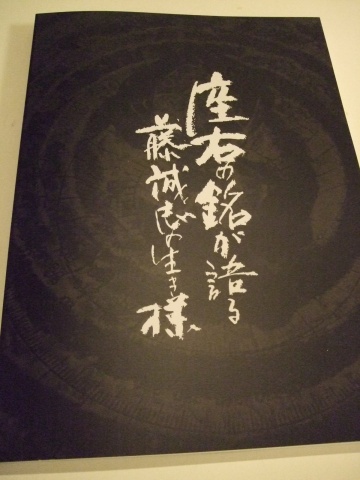 座右の銘が語る
藤誠志の生き様